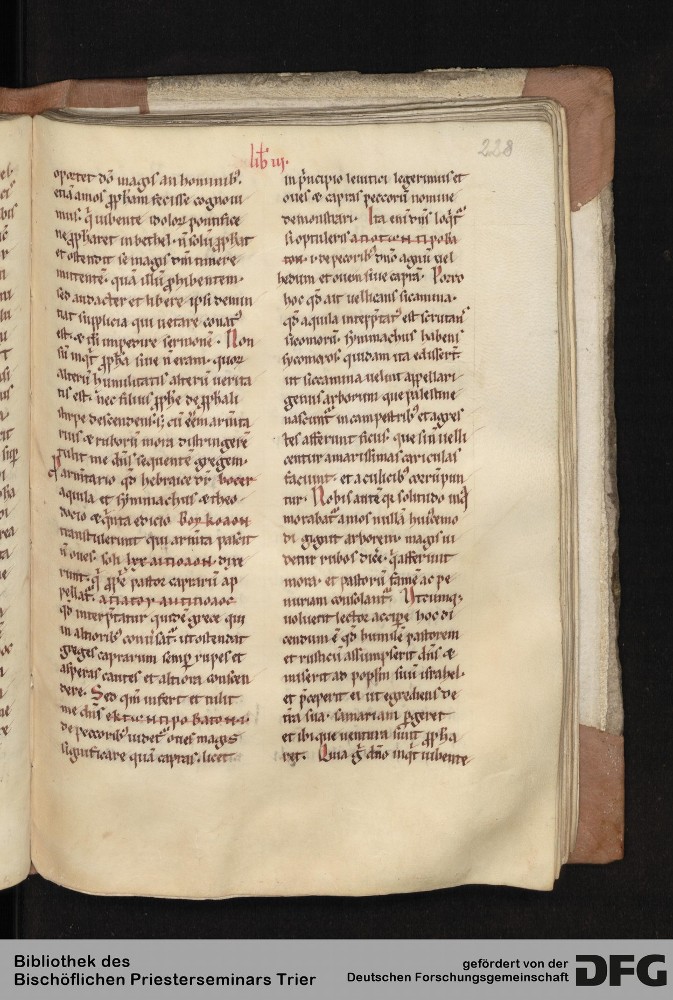 lib̄ iii.
228
oportet dō magis an hominib;
etiā amos ꝓph̄am fecisse cognoui
mus. q̄ iubente idolor̄ pontifice
ne ꝓpharet in bethel. n̄ solū ꝓphat
et ostendit se magis dn̄m timere
mittentē. quā illū ꝓhibentem.
sed audacter et libere ipsi denun
tiat supplicia qui uetare conat᷒
est. & di imperire sermonē. Non
sū inqt ꝓpha siue n̄ eram. quor̄
alterū humilitatis alterū uerita
tis est. nec filius ꝓphe de ꝓphali
stirpe descendens. s; cū eēm armīta
rius & ruborū mora distringerē
tulit me dn̄s sequentē gregem.
ꝓ armītario qd̄ hebraice dr̄ bocer
aquila et symmachus & theo
docio & q̄nta edicio ΒΟΥΚΟΛΟΝ
transtulerunt qui armīta pascit
n̄ oues. soli lxx ΑΙΠΟΛΟΝ dixe
runt. q̄ ꝓpe pastor caprarū ap
pellat᷒.
qd̄ interp̄tatur quidē grece qui
in altiorib; conūsat᷒. ut ostendat
greges caprarum semp̄ rupes et
asperas cautes et altiora conscen
dere. Sed qm̄ infert et tulit
me dn̄s
de peccorib; uidet᷒ oues magis
significare quā capras. licet
in p̄ncipio leuitici legerimus et
oues & capras peccorū nomine
demonstrari. Ita enī dn̄s loq̄t᷒
si optuleris ΑΠΟΤΩΝΠΡΟΒΑ
ΤΩΝ. i. de pecorib; dn̄o agnū uel
hedum et ouem siue caprā. Porro
hoc qd̄ ait uellicans sicamina.
qd̄ aquila interp̄tat᷒ est scrutans
sicomorū. symmachus habens
sycomoros quidam ita edissert̄
ut siccamina uelint appellari
genus arborum que palestine
nascunt᷒ in campestrib; et agres
tes afferunt ficus. que si n̄ uelli
centur amarissimas cariculas
faciunt. et a culicib; corrūpun
tur. Nobis autē qr̄ solitudo inq̄
morabat᷒ amos nullā hui᷒cemo
di gignit arborem. magis ui
detur rubos dicē. q̄ afferunt
mora. et pastorū famē ac pe
nuriam consolant᷒. Utcumq;
uoluerit lector accipe hoc di
cendum ē qd̄ humilē pastorem
et rusticū assumpserit dn̄s &
miserit ad poplm̄ suū israhel.
et p̄ceperit ei ut egrediens de
tr̄a sua. samariam ꝑgeret
et ibi que uentura sunt ꝓpha
ret. Quia g̊ dn̄o inq̄t iubente
Bibliothek des
Bischöflichen Priesterseminars Trier
gefördert von der
Deutschen Forschungsgemeinschaft
DFG